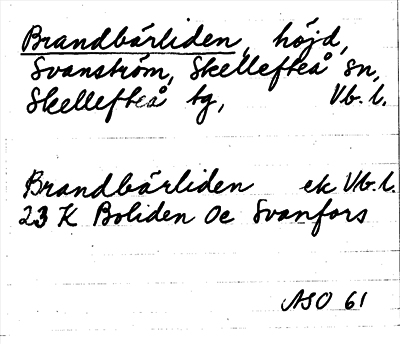 Brandbärliden, höjd,
Svanström, Skellefteå sn,
Skellefteå tg, Vb. l.
Brandbärliden ek Vb. l.
23 K Boliden Oe Svanfors
ASO 61